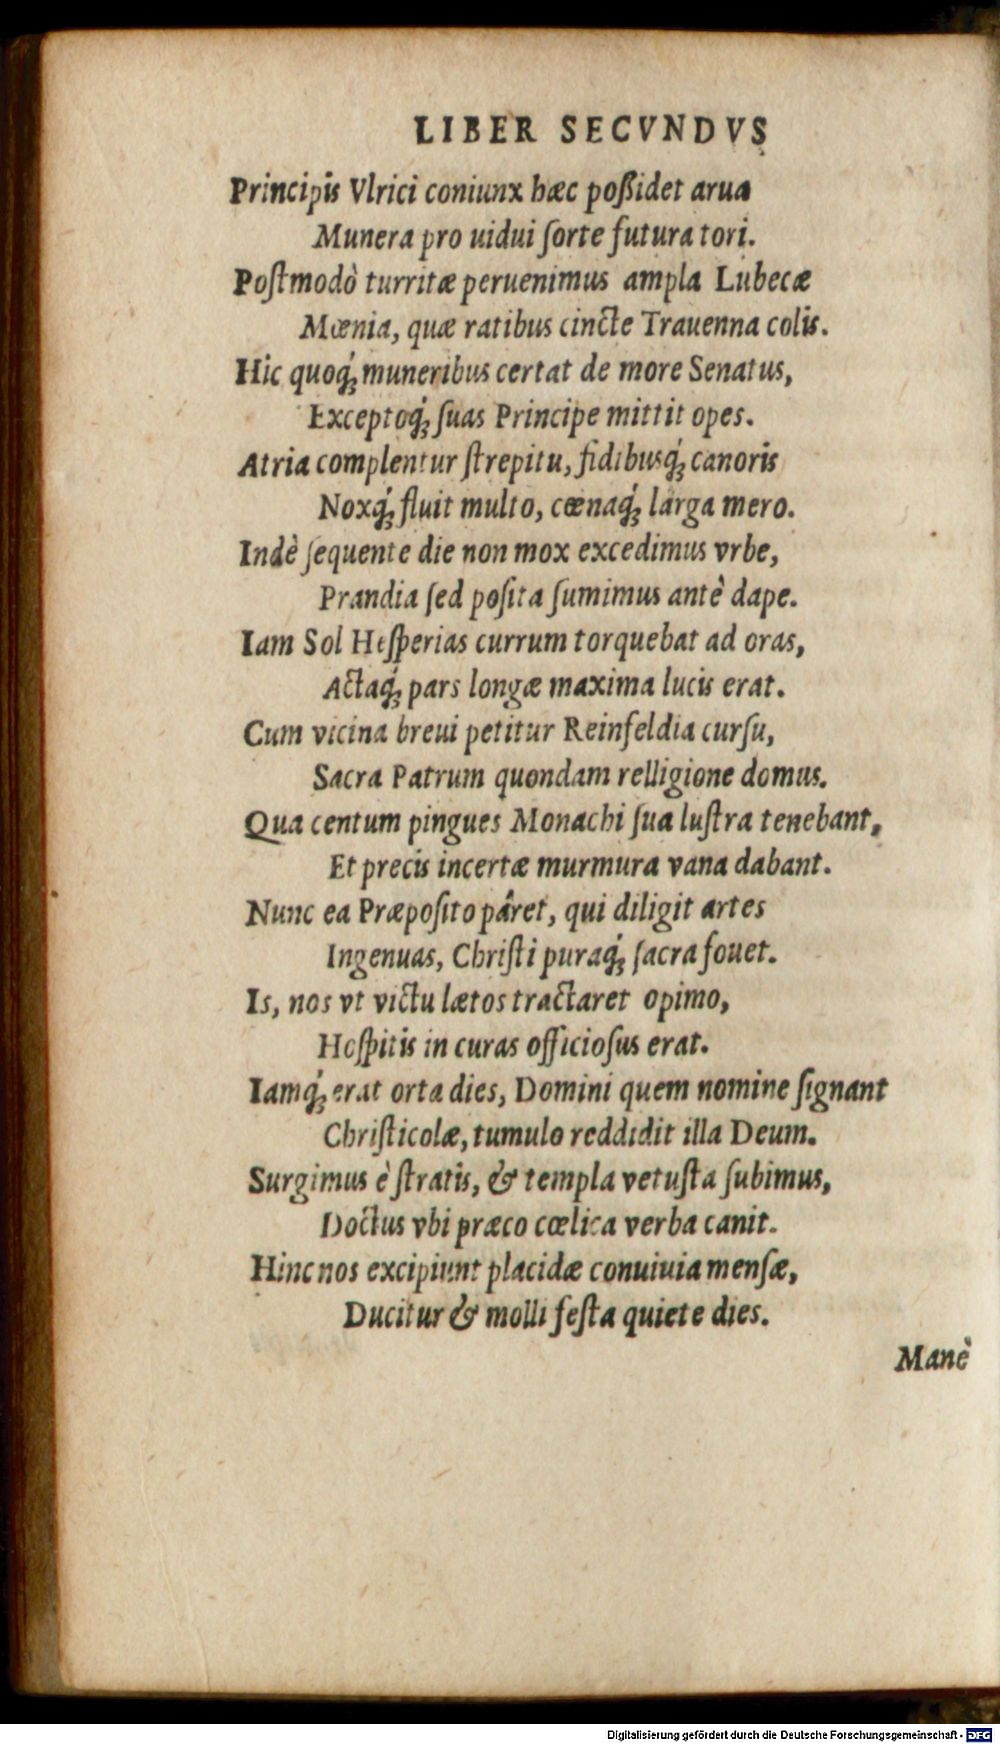 LIBER SECVNDVS
Principis Vlrici coniunx hæc poßidet arua
Munera pro uidui ſorte futura tori.
Poſtmodò turritæ peruenimus ampla Lubecæ
Mœnia, quæ ratibus cincte Trauenna colis.
Hic quoq́ꝫ muneribus certat de more Senatus,
Exceptoq́ꝫ ſuas Principe mittit opes.
Atria complentur ſtrepitu, fidibusq́ꝫ canoris
Noxq́ꝫ fluit multo, cœnaq́ꝫ larga mero.
Indè ſequente die non mox excedimus vrbe,
Prandia ſed poſita ſumimus antè dape.
Iam Sol Heſperias currum torquebat ad oras,
Actaq́ꝫ pars longæ maxima lucis erat.
Cum vicina breui petitur Reinfeldia curſu,
Sacra Patrum quondam relligione domus.
Qua centum pingues Monachi ſua luſtra tenebant,
Et precis incertæ murmura vana dabant.
Nunc ea Præpoſito pâret, qui diligit artes
Ingenuas, Chriſti puraq́ꝫ ſacra fouet.
Is, nos vt victu lætos tractaret opimo,
Hoſpitis in curas officioſus erat.
Iamq́ꝫ erat orta dies, Domini quem nomine ſignant
Chriſticolæ, tumulo reddidit illa Deum.
Surgimus è ſtratis, & templa vetuſta ſubimus,
Doctus vbi præco cœlica verba canit.
Hinc nos excipiunt placidæ conuiuia menſæ,
Ducitur & molli feſta quiete dies.
Manè
Digitalisierung gefördert durch die Deutsche Forschungsgemeinschaft - DFG